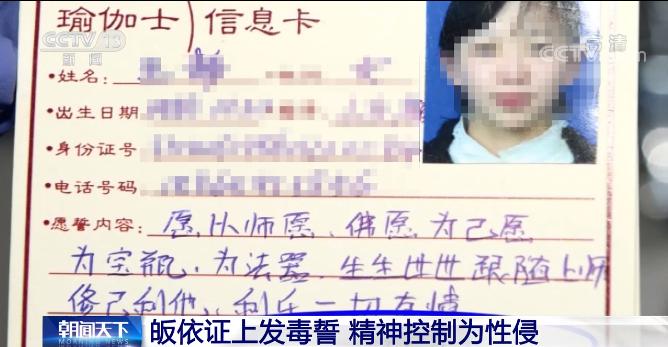 CCTV 13
新闻
高清
瑜伽士 信息卡
·姓名:
·出生日期
·身份证号
·电话号码
·愿誓内容: 愿以师愿、佛愿为己愿
为宝瓶,为法器.生生世世跟随上师
修己利他,利乐一切有情
朝闻天下
皈依证上发毒誓 精神控制为性侵